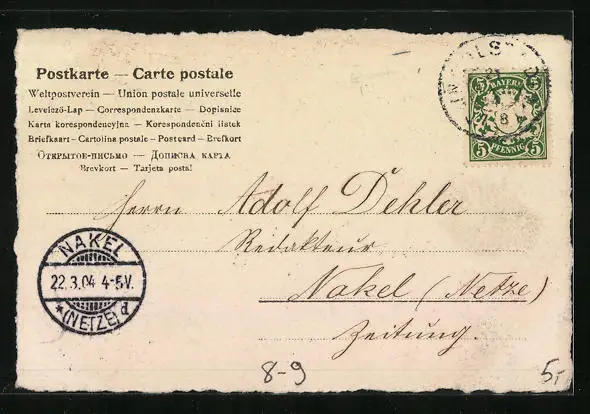 Postkarte — Carte postale
Weltpostverein — Union postale universelle
Levelező-Lap — Correspondenzkarte — Dopisnice
Karta korespondencyjna — Korespondenční lístek
Briefkaart — Cartolina postale — Postcard — Brefkort
Открытое-письмо — Дописна карта
Brevkort — Tarjeta postal
BAYERN
5 5
5 5
PFENNIG
Herrn Adolf Dehler
Redakteur
Nakel (Netze)
Zeitung.
NAKEL
22.3.04 4-5V.
* (NETZE) d
8-9
5,-